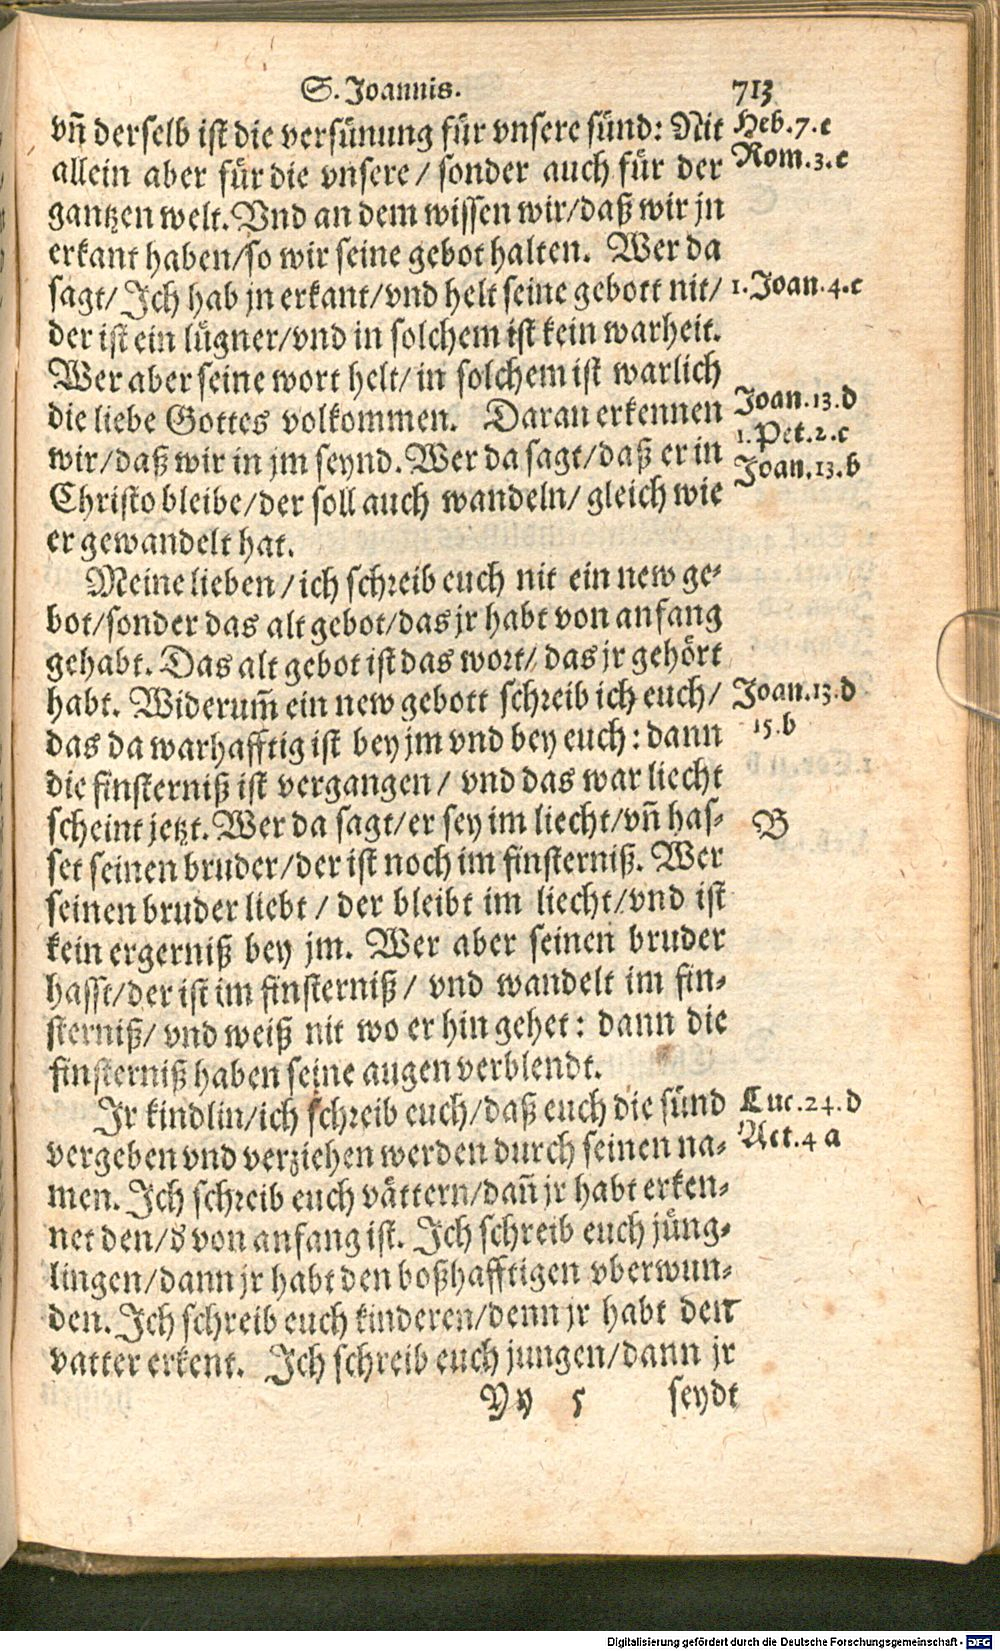 S. Joannis.
713
vñ derselb ist die versünung für vnsere sünd: Nit
Heb.7.e
allein aber für die vnsere / sonder auch für der
Rom.3.c
gantzen welt. Vnd an dem wissen wir/daß wir jn
erkant haben/so wir seine gebot halten. Wer da
sagt/ Ich hab jn erkant/vnd helt seine gebott nit/
1.Joan.4.c
der ist ein lügner/vnd in solchem ist kein warheit.
Wer aber seine wort helt/ in solchem ist warlich
die liebe Gottes volkommen. Daran erkennen
Joan.13.d
1.Pet.2.c
wir/daß wir in jm seynd. Wer da sagt/daß er in
Joan.13.b
Christo bleibe/der soll auch wandeln/ gleich wie
er gewandelt hat.
Meine lieben / ich schreib euch nit ein new ge-
bot/sonder das alt gebot/das jr habt von anfang
gehabt. Das alt gebot ist das wort/ das jr gehört
habt. Widerum̃ ein new gebott schreib ich euch/
Joan.13.d
das da warhafftig ist bey jm vnd bey euch: dann
15.b
die finsterniß ist vergangen / vnd das war liecht
scheint jetzt. Wer da sagt/er sey im liecht/vñ has-
B
set seinen bruder/der ist noch im finsterniß. Wer
seinen bruder liebt / der bleibt im liecht/vnd ist
kein ergerniß bey jm. Wer aber seinen bruder
hasst/der ist im finsterniß / vnd wandelt im fin-
sterniß/ vnd weiß nit wo er hin gehet: dann die
finsterniß haben seine augen verblendt.
Jr kindlin/ich schreib euch/daß euch die sünd
Luc.24.d
vergeben vnd verziehen werden durch seinen na-
Act.4 a
men. Ich schreib euch vättern/dañ jr habt erken-
net den/d von anfang ist. Ich schreib euch jüng-
lingen/dann jr habt den boßhafftigen vberwun-
den. Ich schreib euch kinderen/denn jr habt den
vatter erkent. Ich schreib euch jungen/dann jr
Yy 5 seydt
Digitalisierung gefördert durch die Deutsche Forschungsgemeinschaft - DFG